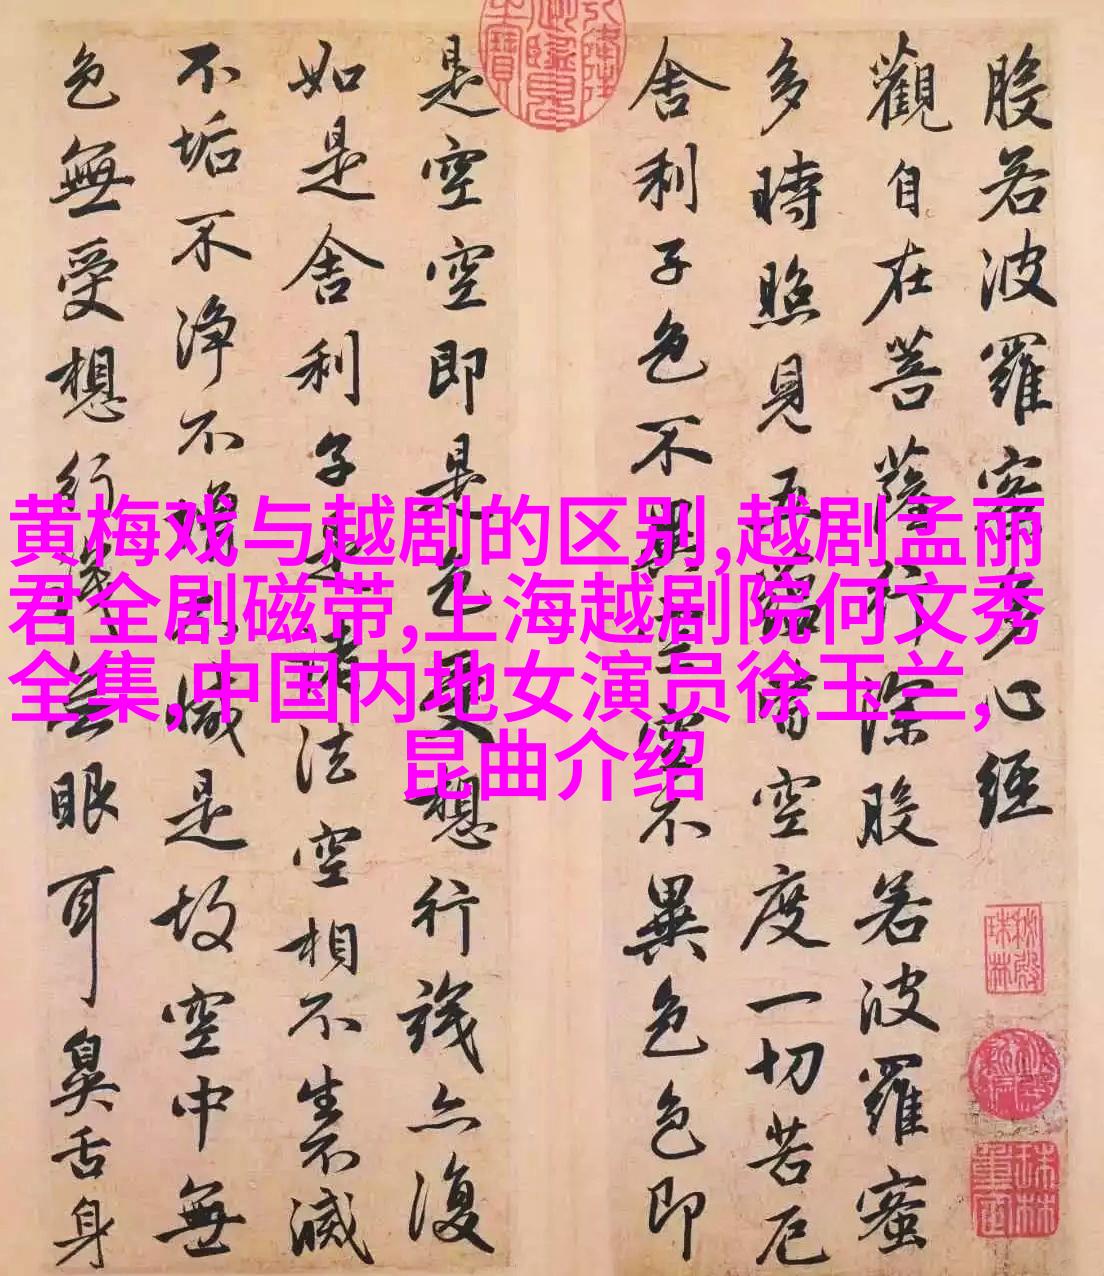 黄梅戏与越剧的区别,越剧孟丽
君全剧磁带,上海越剧院何文秀
全集,中国内地女演员徐玉兰,
昆曲介绍
般若波羅蜜多心經
觀自在菩薩行深般若波羅蜜
多時照見五蘊皆空度一切苦厄
舍利子色不異空空不異色色即
是空空即是色受想行識亦復
如是舍利子是諸法空相不生不滅
不垢不淨不增不減是故空中無
色無受想行識無眼耳鼻舌身